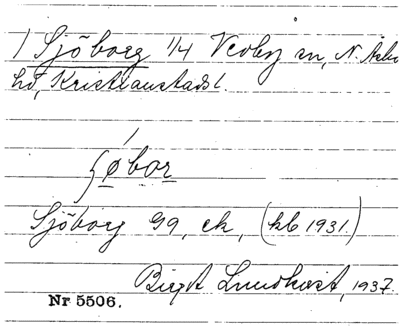 1 Sjöborg 1/4 Verby m, N. Åsbo
hd, Kristianstads l.
ʃøbor
Sjöborg gg, ek, (kb 1931.)
Birgit Lundqvist, 1937.
Nr 5506.